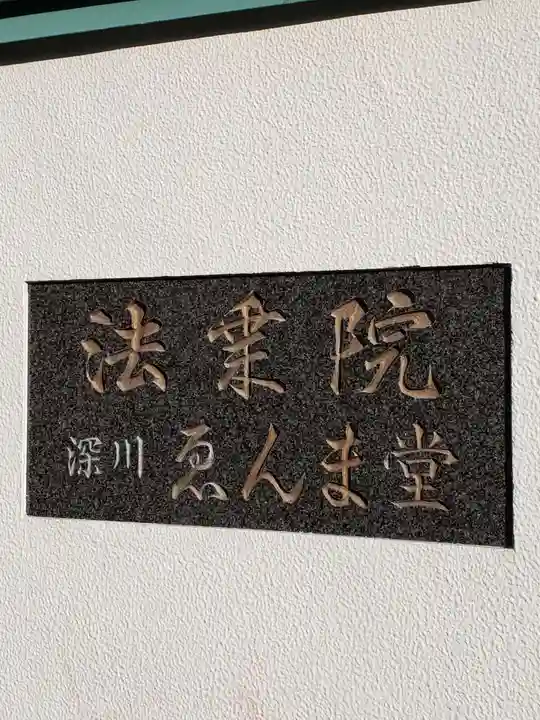 法業院
深川ゑんま堂